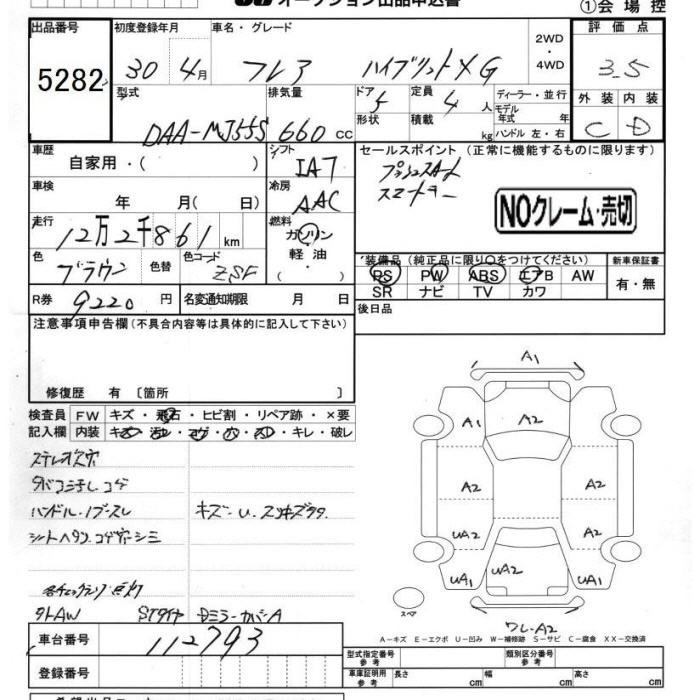 オークション出品申込書
①会場控
出品番号 初度登録年月 車名・グレード 2WD 4WD 評価点
5282 30 4月 フレア ハイブリットXG 3.5
型式 排気量 ドア 5 定員 4 人 ディーラー・並行 外装 内装
DAA-MJ55S 660 CC 形状 積載 kg モデル年式 年 ハンドル 左・右 C D
車歴 自家用・( ) シフト IAT セールスポイント (正常に機能するものに限ります)
プッシュスタート
スマートキー
車検 年 月( 日) 冷房 AAC
NOクレーム・売切
走行 12万2千861 km 燃料 ガソリン 軽油・( )
色 ブラウン 色替 色コード ZSF
装備品 (純正品に限り○をつけてください) 新車保証書
PS PW ABS エアB AW 有・無
SR ナビ TV カワ
R券 9220 円 名変通知期限 月 日
後日品
注意事項申告欄 (不具合内容等は具体的に記入して下さい)
修復歴 有 〔箇所 〕
検査員記入欄 FW キズ・飛石・ヒビ割・リペア跡・×要
内装 キズ・汚レ・コゲ・穴・スレ・キレ・破レ
A1
A1 A2
A2 A2
UA2 A2
UA1 UA2 UA1
スペア
ワレA2
ステレオ欠穴
タバコ ヨゴレ コゲ
ハンドル・ノブ・スレ キズ・U・スリキズ
シートヘタリ コゲ穴 シミ
点灯
タイヤ DミラーカバーA
A-キズ E-エクボ U-凹み W-補修跡 S-サビ C-腐食 XX-交換済
車台番号 112793
型式指定番号 参考 類別区分番号 参考
登録番号 車庫証明用 参考 長さ cm 幅 cm 高さ cm